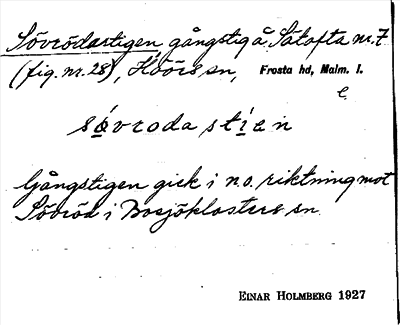 Sövrödastigen gångstig å Sätofta nr. 7
(fig. nr. 28), Höörs sn, Frosta hd, Malm. l.
e
sövroda stien
Gångstigen gick i n.o. riktning mot
Sövröd i Bosjöklosters sn.
EINAR HOLMBERG 1927